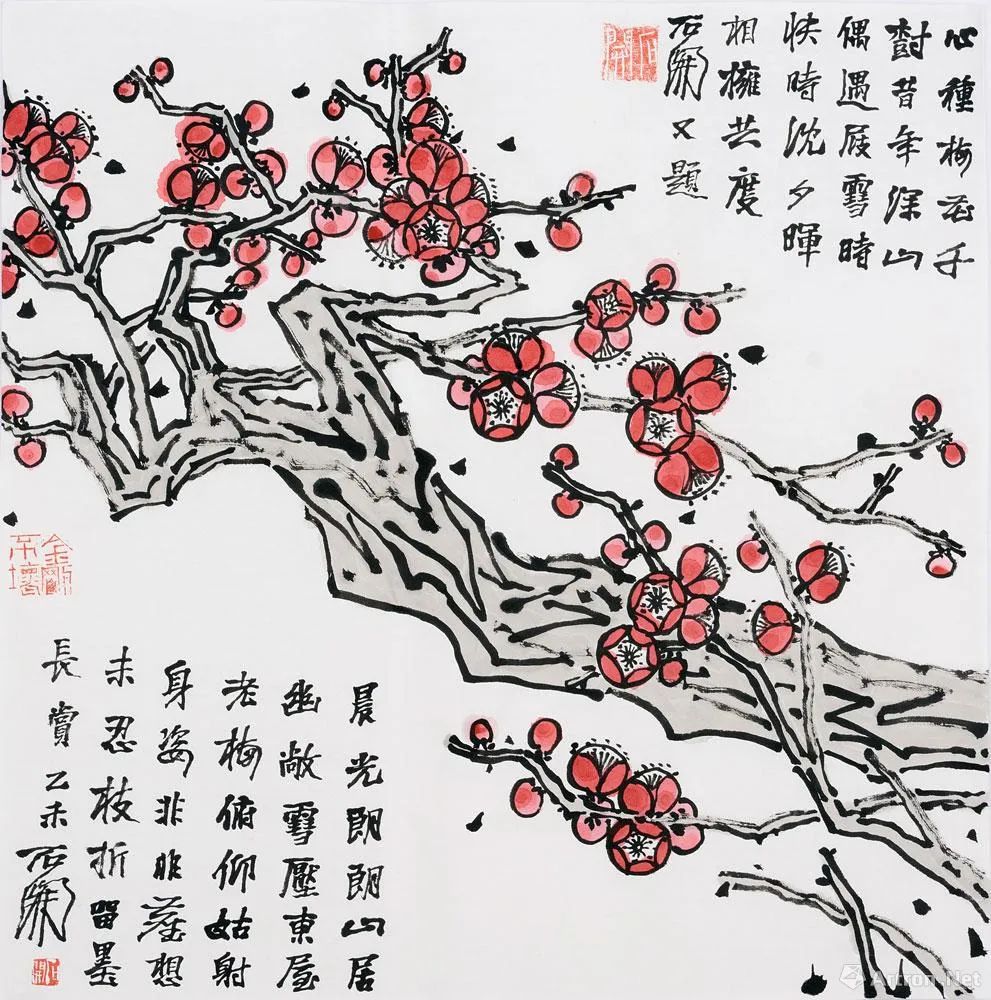 心種梅花千
樹昔年深山
偶遇雪時
快時沈夕暉
相擁共度
石開又題
金剛不壞
晨光朗朗山居
幽敞雪壓東屋
老梅俯仰姑射
身姿非非想
未忍枝折留墨
長賞乙未
石開
Artron.Net